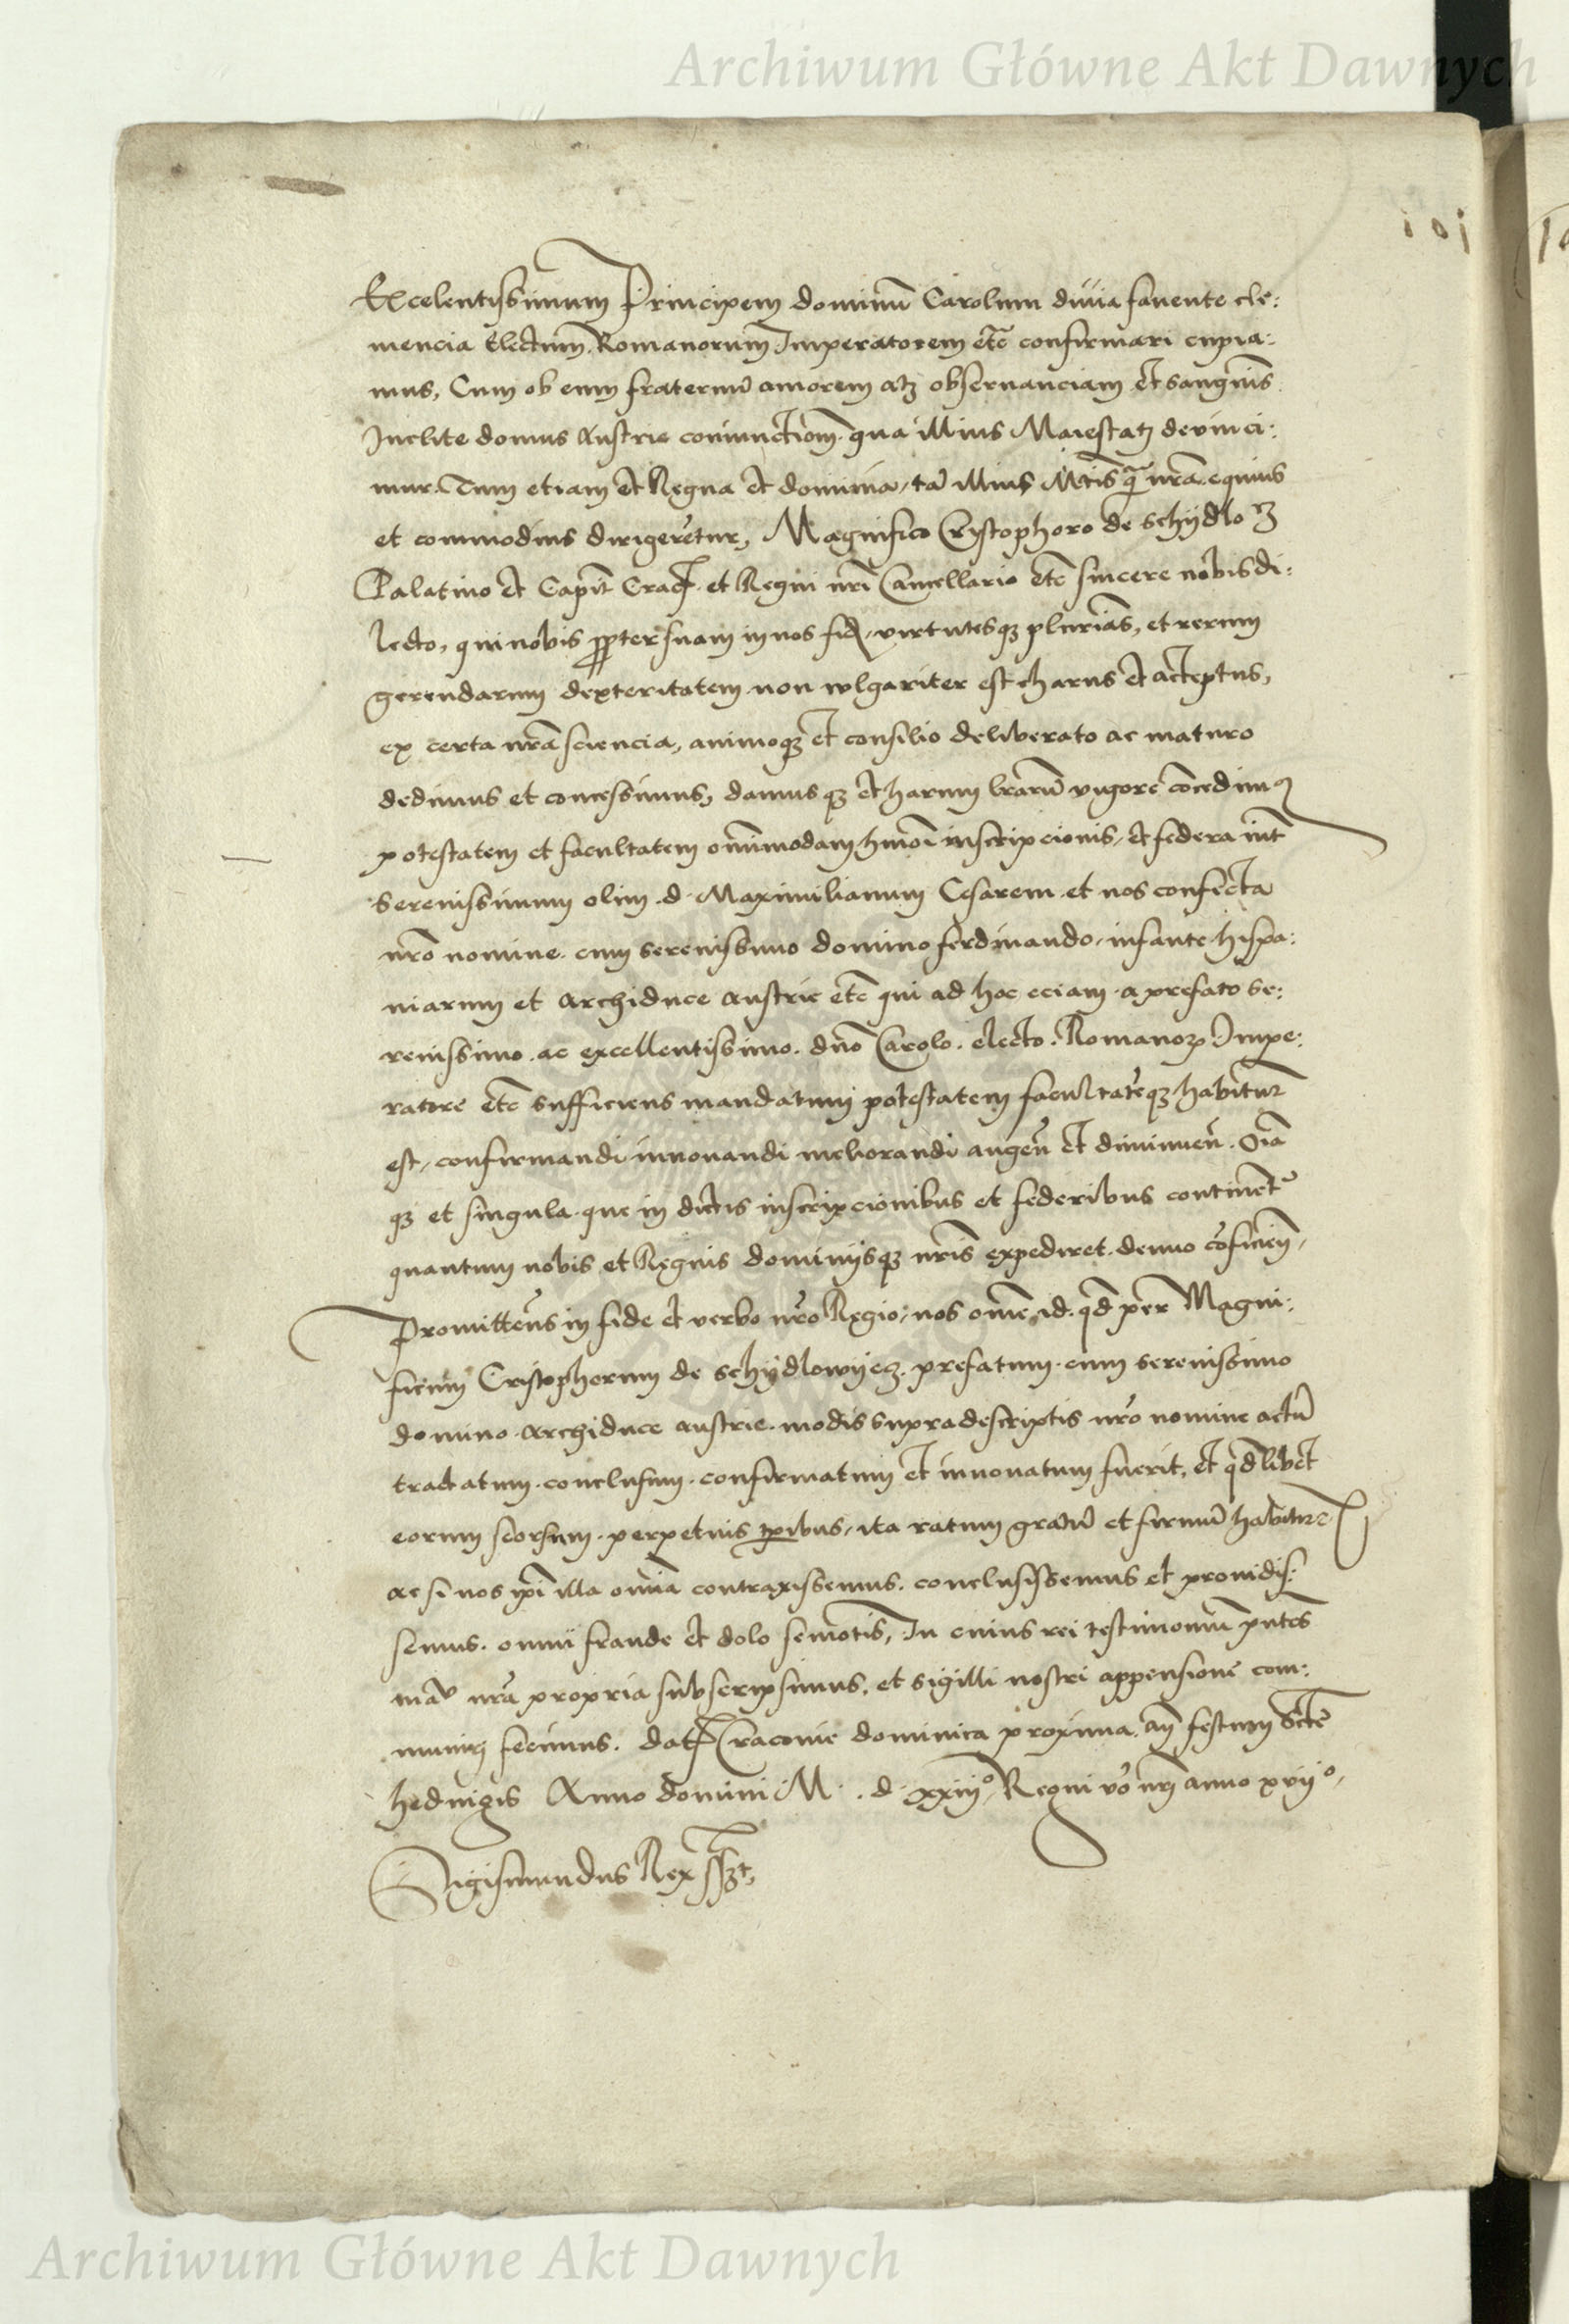 Archiwum Główne Akt Dawnych
101
Excelentissimum Principem dominũ Carolum diuĩa fauente cle:
mencia Electum Romanorum Imperatorem etc̃ confirmari cupia:
mus, Cum ob eum fraternũ amorem atq3 obseruanciam et sanguis̃
Inclite domus Austrie coniunctiom̃ qua illius Maiestatj deuinci:
mur. Tum etiam et Regna et dominia, tã illius Mtis̃ q̃ nrã equius
et commodius dirigerẽtur, Magnifico Cristophoro de Schÿdlo
Palatino et Capit̃ Crac̃. et Regni nrĩ Cancellario etc̃ sincere nobis di:
lecto, qui nobis ppter suam in nos fid̃, virtutesq3 plurias̃, et rerum
gerendarum dexteritatem non wlgariter est charus et acceptus,
ex certa nrã sciencia, animoq3 et consilio deliberato ac maturo
dedimus et concessimus, damusq3 et harum lrarũ vigorẽ cõcedim9
potestatem et facultatem omimodam hmoĩ inscripcionis, et federa int̃
Serenissimum olim .d. Maximilianum Cesarem et nos confecta
nrõ nomine. cum serenissimo domino ferdinando, infante hispa:
niarum et Archiduce Austrie etc̃ qui ad hoc eciam a prefato Se:
renissimo ac excellentissimo. dnõ Carolo. electo. Romanoꝝ Impe:
ratore etc̃ sufficiens mandatum potestatem facultatẽq3 habitur
est, confirmandi innouandi meliorandi augeñ et diminueñ. Oĩa
q3 et singula que in dictis inscripcionibus et federibus continent̃
quantum nobis et Regnis dominijsq3 nrĩs expediret. denuo cõficieñ,
Promittẽs in fide et verbo nrõ Regio, nos omẽ id. qd̃ per Magni:
ficum Cristophorum de Schÿdlowijecz. prefatum. cum serenissimo
domino Archiduce austrie. modis supradescriptis nrõ nomine actũ
tractatum. conclusum. confirmatum et innouatum fuerit, et qd̃libet
eorum seorsum. perpetuis tpibus, ita ratum gratũ et firmũ habitur
ac si nos ipĩ illa omĩa contraxissemus. conclusissemus et prouidis:
semus. omni fraude et dolo semotis, In cuius rei testimoniũ pñtes
manũ nrã propria subscripsimus, et sigilli nostri appensionẽ com:
muniri fecimus. dat̃ Cracouie dominica proxima. añ festum Sctẽ
hedwigis Anno domini M. d. xxiijº, Regni vo nrj anno xvijº,
Sigismundus Rex sszt,
Archiwum Główne Akt Dawnych